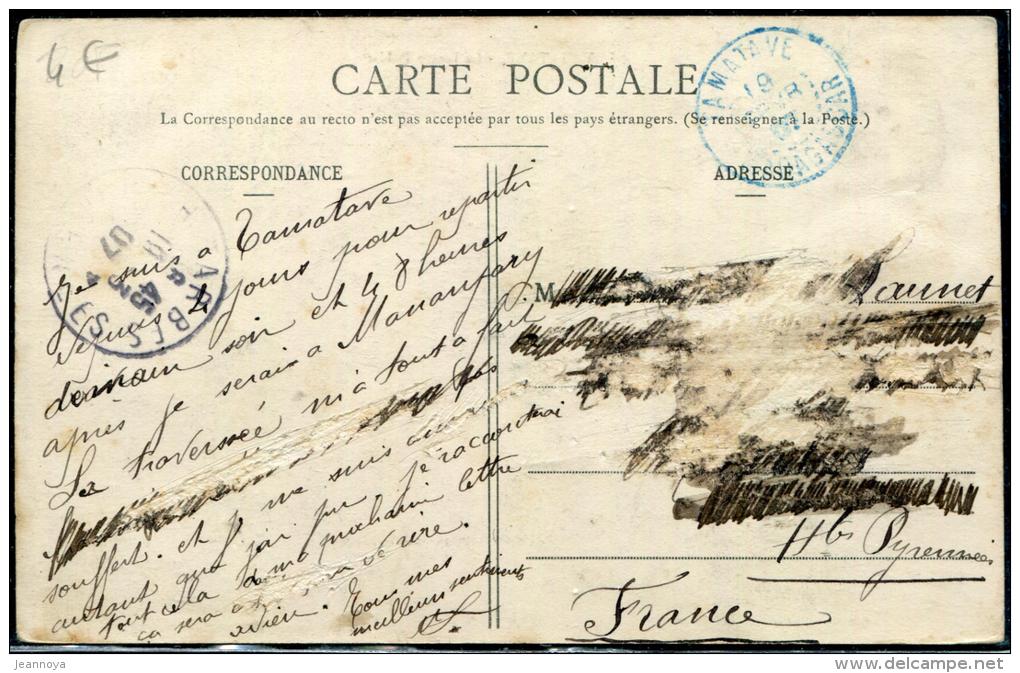 4 €
CARTE POSTALE
La Correspondance au recto n'est pas acceptée par tous les pays étrangers. (Se renseigner à la Poste.)
TAMATAVE
19
MADAGASCAR
CORRESPONDANCE
ADRESSE
TARBES
07
Je suis a Tamatave
depuis 4 jours pour repartir
demain soir et 48 heures
après je serais a Mananjary
La traversée m'a tout a fait
souffert. et je me suis
autant que j'ai pu je raconterai
tout cela dans ma prochain lettre
ça sera
adieu. Tous mes
meilleurs sentiments
M
Hts Pyrennées
France
jeannoya
delcampe.net